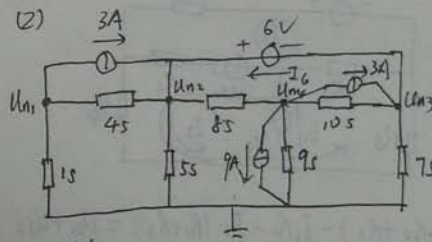 (2)
3A
6V
+ −
I6
3A
Un1
Un2
Un4
Un3
4S
8S
10S
1S
5S
9A
9S
7S